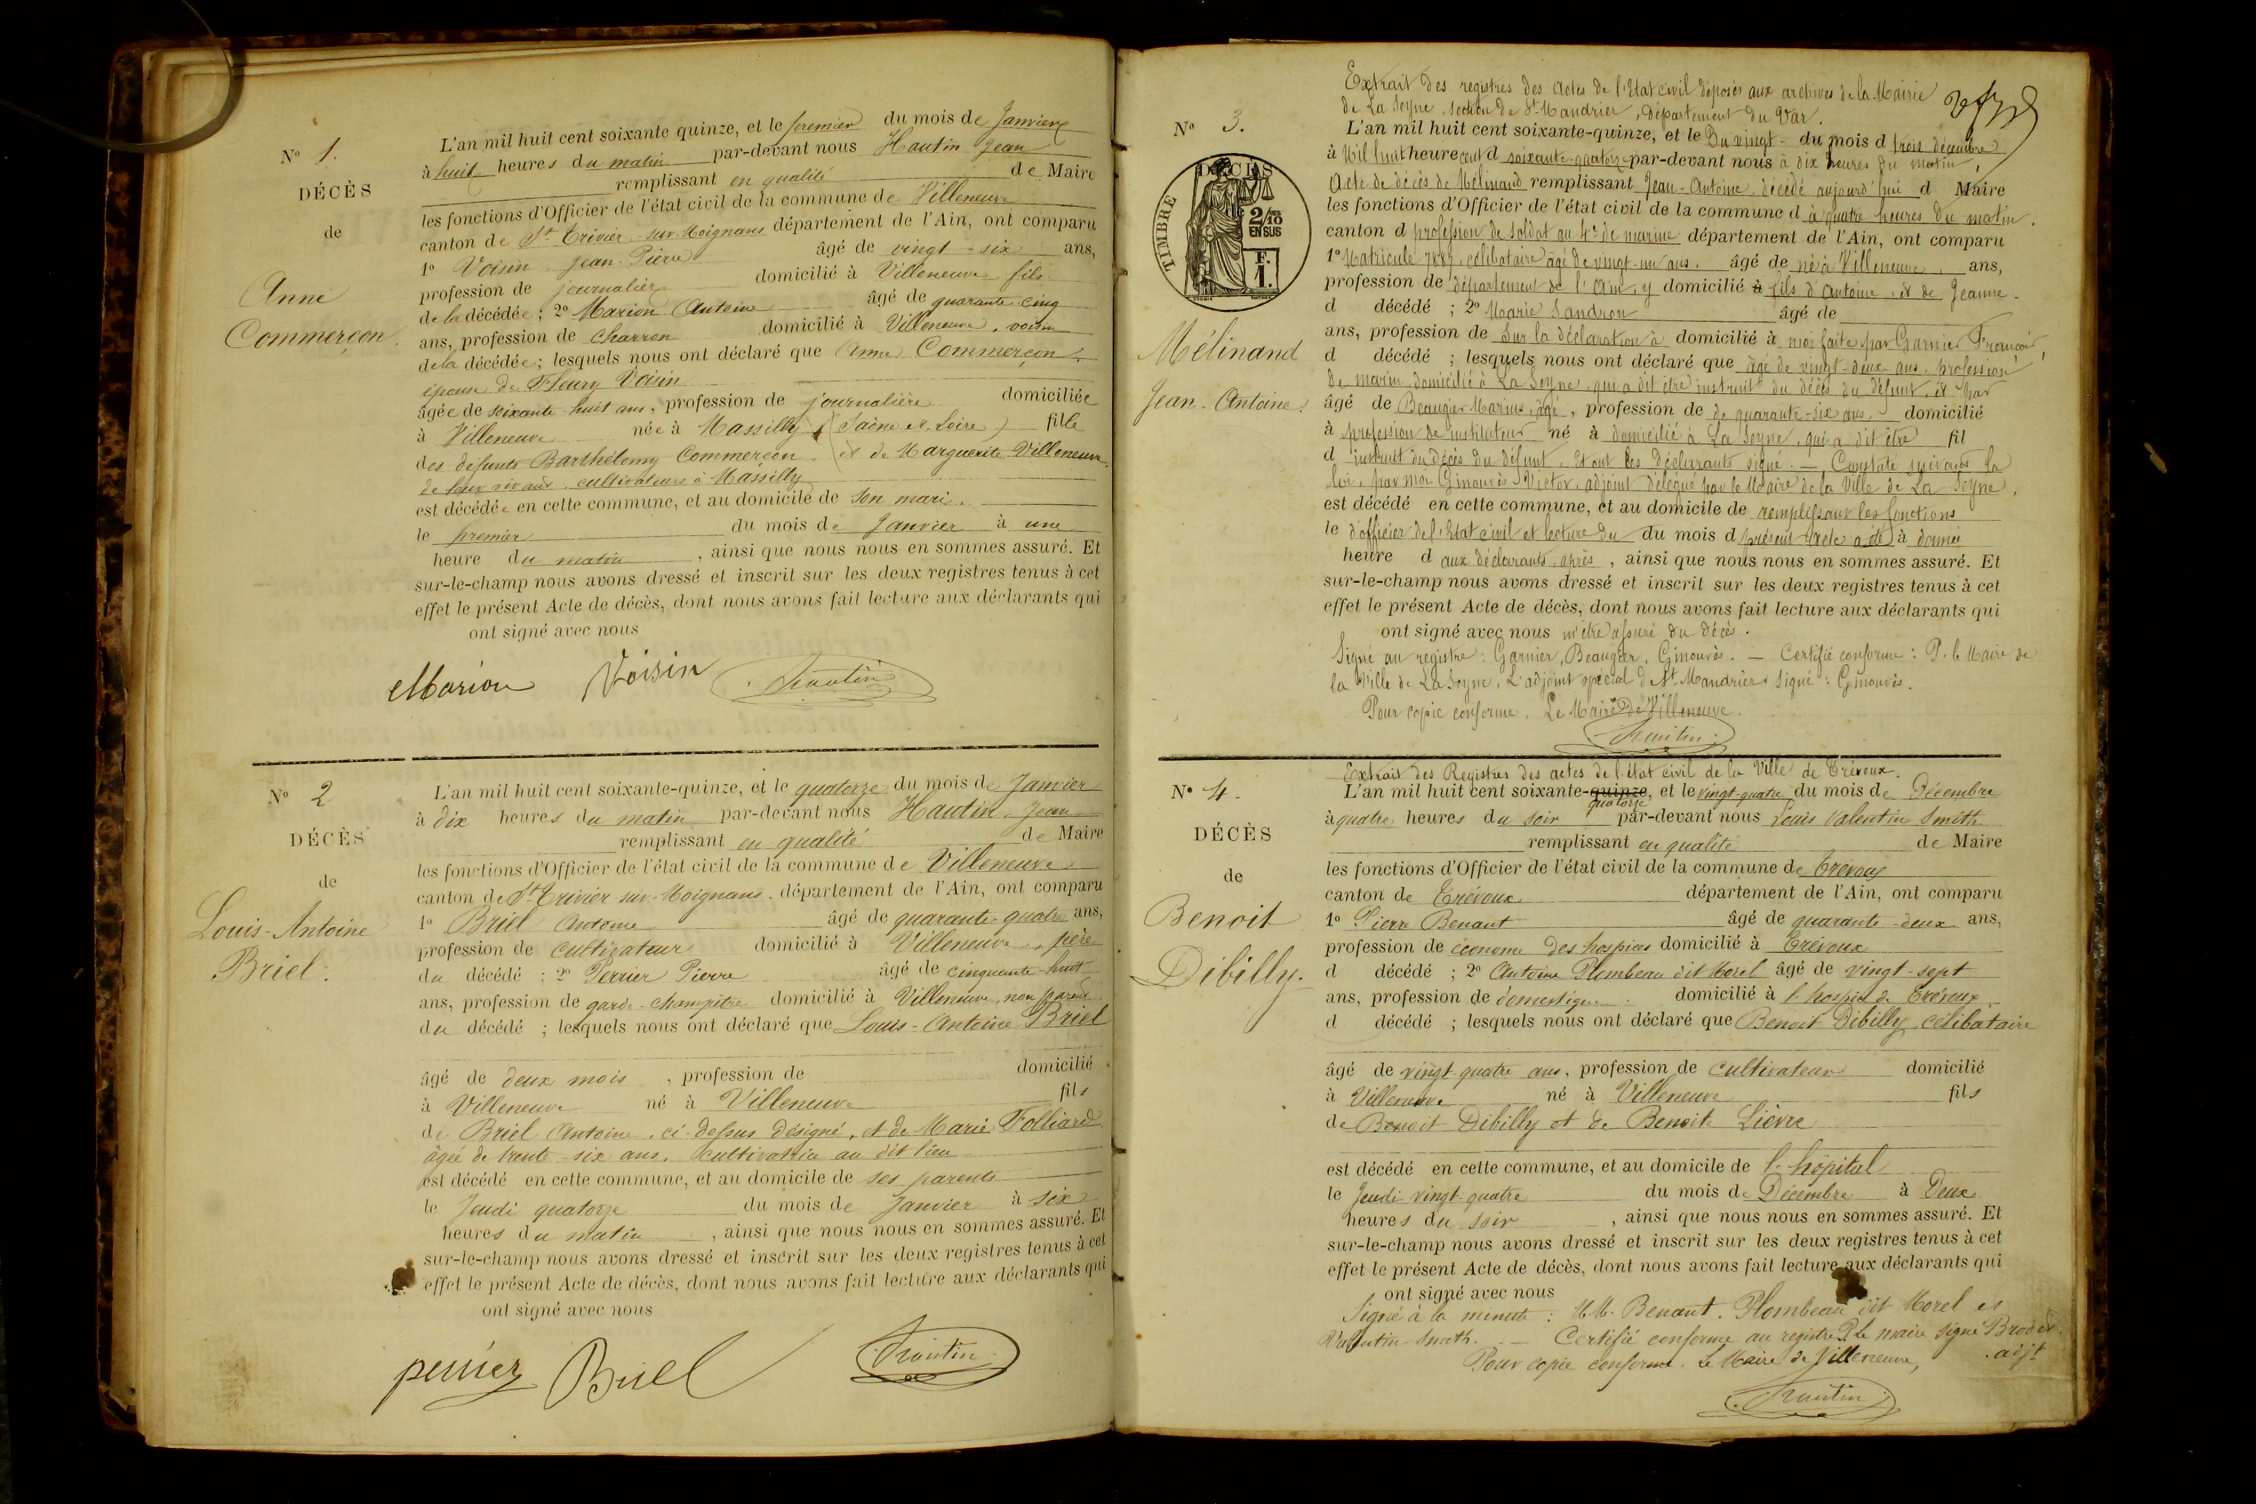 N° 1.
DÉCÈS
de
Anne
Commerçon.
L'an mil huit cent soixante quinze, et le premier du mois de Janvier
à huit heures du matin par-devant nous Hautin Jean
remplissant en qualité de Maire
les fonctions d'Officier de l'état civil de la commune de Villeneuve
canton de St Trivier-sur-Moignans département de l'Ain, ont comparu
1° Voisin Jean-Pierre âgé de vingt-six ans,
profession de journalier domicilié à Villeneuve fils
de la décédée ; 2° Marion Antoine âgé de quarante cinq
ans, profession de charron domicilié à Villeneuve, voisin
de la décédée ; lesquels nous ont déclaré que Anne Commerçon,
épouse de Fleury Voisin
âgée de soixante-huit ans, profession de journalière domiciliée
à Villeneuve née à Massilly (Saône et Loire) fille
des défunts Barthélemy Commerçon et de Marguerite Villeneuve,
de leur vivant cultivateurs à Massilly
est décédée en cette commune, et au domicile de son mari.
le premier du mois de Janvier à une
heure du matin, ainsi que nous nous en sommes assuré. Et
sur-le-champ nous avons dressé et inscrit sur les deux registres tenus à cet
effet le présent Acte de décès, dont nous avons fait lecture aux déclarants qui
ont signé avec nous
Marion Voisin Hautin
N° 2
DÉCÈS
de
Louis-Antoine
Briel.
L'an mil huit cent soixante-quinze, et le quatorze du mois de Janvier
à dix heures du matin par-devant nous Hautin Jean
remplissant en qualité de Maire
les fonctions d'Officier de l'état civil de la commune de Villeneuve
canton de St Trivier sur-Moignans, département de l'Ain, ont comparu
1° Briel Antoine âgé de quarante-quatre ans,
profession de cultivateur domicilié à Villeneuve, père
du décédé ; 2° Perrier Pierre âgé de cinquante-huit
ans, profession de garde-champêtre domicilié à Villeneuve, non parent
du décédé ; lesquels nous ont déclaré que Louis-Antoine Briel
âgé de deux mois, profession de domicilié
à Villeneuve né à Villeneuve fils
de Briel Antoine, ci-dessus désigné, et de Marie Folliard
âgée de trente-six ans, cultivatrice au dit lieu
est décédé en cette commune, et au domicile de ses parents
le Jeudi quatorze du mois de Janvier à six
heures du matin, ainsi que nous nous en sommes assuré. Et
sur-le-champ nous avons dressé et inscrit sur les deux registres tenus à cet
effet le présent Acte de décès, dont nous avons fait lecture aux déclarants qui
ont signé avec nous
perrier Briel Hautin
N° 3.
DÉCÈS
TIMBRE
2/10
EN SUS
F.
1.
Mélinand
Jean-Antoine.
Extrait des registres des actes de l'Etat civil déposés aux archives de la Mairie
de La Seyne, section de St Mandrier, département du Var.
L'an mil huit cent soixante-quinze, et le Du vingt- du mois d trois décembre
à Mil huit heure cent d soixante-quatorze par-devant nous à dix heures du matin,
Acte de décès de Mélinand remplissant Jean-Antoine, décédé aujourd'hui d Maire
les fonctions d'Officier de l'état civil de la commune d à quatre heures du matin.
canton d profession de soldat au 4e de marine département de l'Ain, ont comparu
1° Matricule célibataire âgé de vingt-un ans, âgé de né à Villeneuve, ans,
profession de département de l'Ain, y domicilié à fils d'Antoine, et de Jeanne-
d décédé ; 2° Marie Sandron âgé de
ans, profession de Sur la déclaration à domicilié à moi faite par Garnier François,
d décédé ; lesquels nous ont déclaré que âgé de vingt-deux ans, profession
de marin, domicilié à La Seyne, qui a dit être instruit du décès du défunt, et par
âgé de Beaugier Marius, âgé, profession de de quarante-six ans, domicilié
à profession de instituteur né à domicilié à La Seyne, qui a dit être fil
d instruit du décès du défunt. Et ont les déclarants signé. — Constaté suivant la
loi, par moi Ginouvès Victor, adjoint délégué par le Maire de la Ville de La Seyne,
est décédé en cette commune, et au domicile de remplissant les fonctions
le d'officier de l'Etat civil et lecture du du mois d présent acte a été à donnée
heure d aux déclarants, après, ainsi que nous nous en sommes assuré. Et
sur-le-champ nous avons dressé et inscrit sur les deux registres tenus à cet
effet le présent Acte de décès, dont nous avons fait lecture aux déclarants qui
ont signé avec nous m'être assuré du décès.
Signé au registre : Garnier, Beaugier, Ginouvès. — Certifié conforme : P. le Maire de
la Ville de La Seyne, L'adjoint spécial de St Mandrier signé : Ginouvès.
Pour copie conforme. Le Maire de Villeneuve.
Hautin
N° 4.
DÉCÈS
de
Benoit
Dibilly.
Extrait des Registres des actes de l'état civil de la Ville de Trévoux.
L'an mil huit cent soixante-quinze, et le vingt-quatre du mois de Décembre
quatorze
à quatre heures du soir par-devant nous Louis Valentin Smith
remplissant en qualité de Maire
les fonctions d'Officier de l'état civil de la commune de Trévoux
canton de Trévoux département de l'Ain, ont comparu
1° Pierre Benant âgé de quarante-deux ans,
profession de économe des hospices domicilié à Trévoux
d décédé ; 2° Antoine Plombeau dit Morel âgé de vingt-sept
ans, profession de domestique domicilié à l'hospice de Trévoux
d décédé ; lesquels nous ont déclaré que Benoit Dibilly, célibataire
âgé de vingt quatre ans, profession de cultivateur domicilié
à Villeneuve né à Villeneuve fils
de Benoit Dibilly et de Benoite Lièvre
est décédé en cette commune, et au domicile de l'hôpital
le Jeudi-vingt-quatre du mois de Décembre à deux
heures du soir, ainsi que nous nous en sommes assuré. Et
sur-le-champ nous avons dressé et inscrit sur les deux registres tenus à cet
effet le présent Acte de décès, dont nous avons fait lecture aux déclarants qui
ont signé avec nous
Signé à la minute : MM. Benant. Plombeau dit Morel et
Valentin Smith. — Certifié conforme au registre P. Le maire signé
adjt
Pour copie conforme. Le Maire de Villeneuve,
Hautin